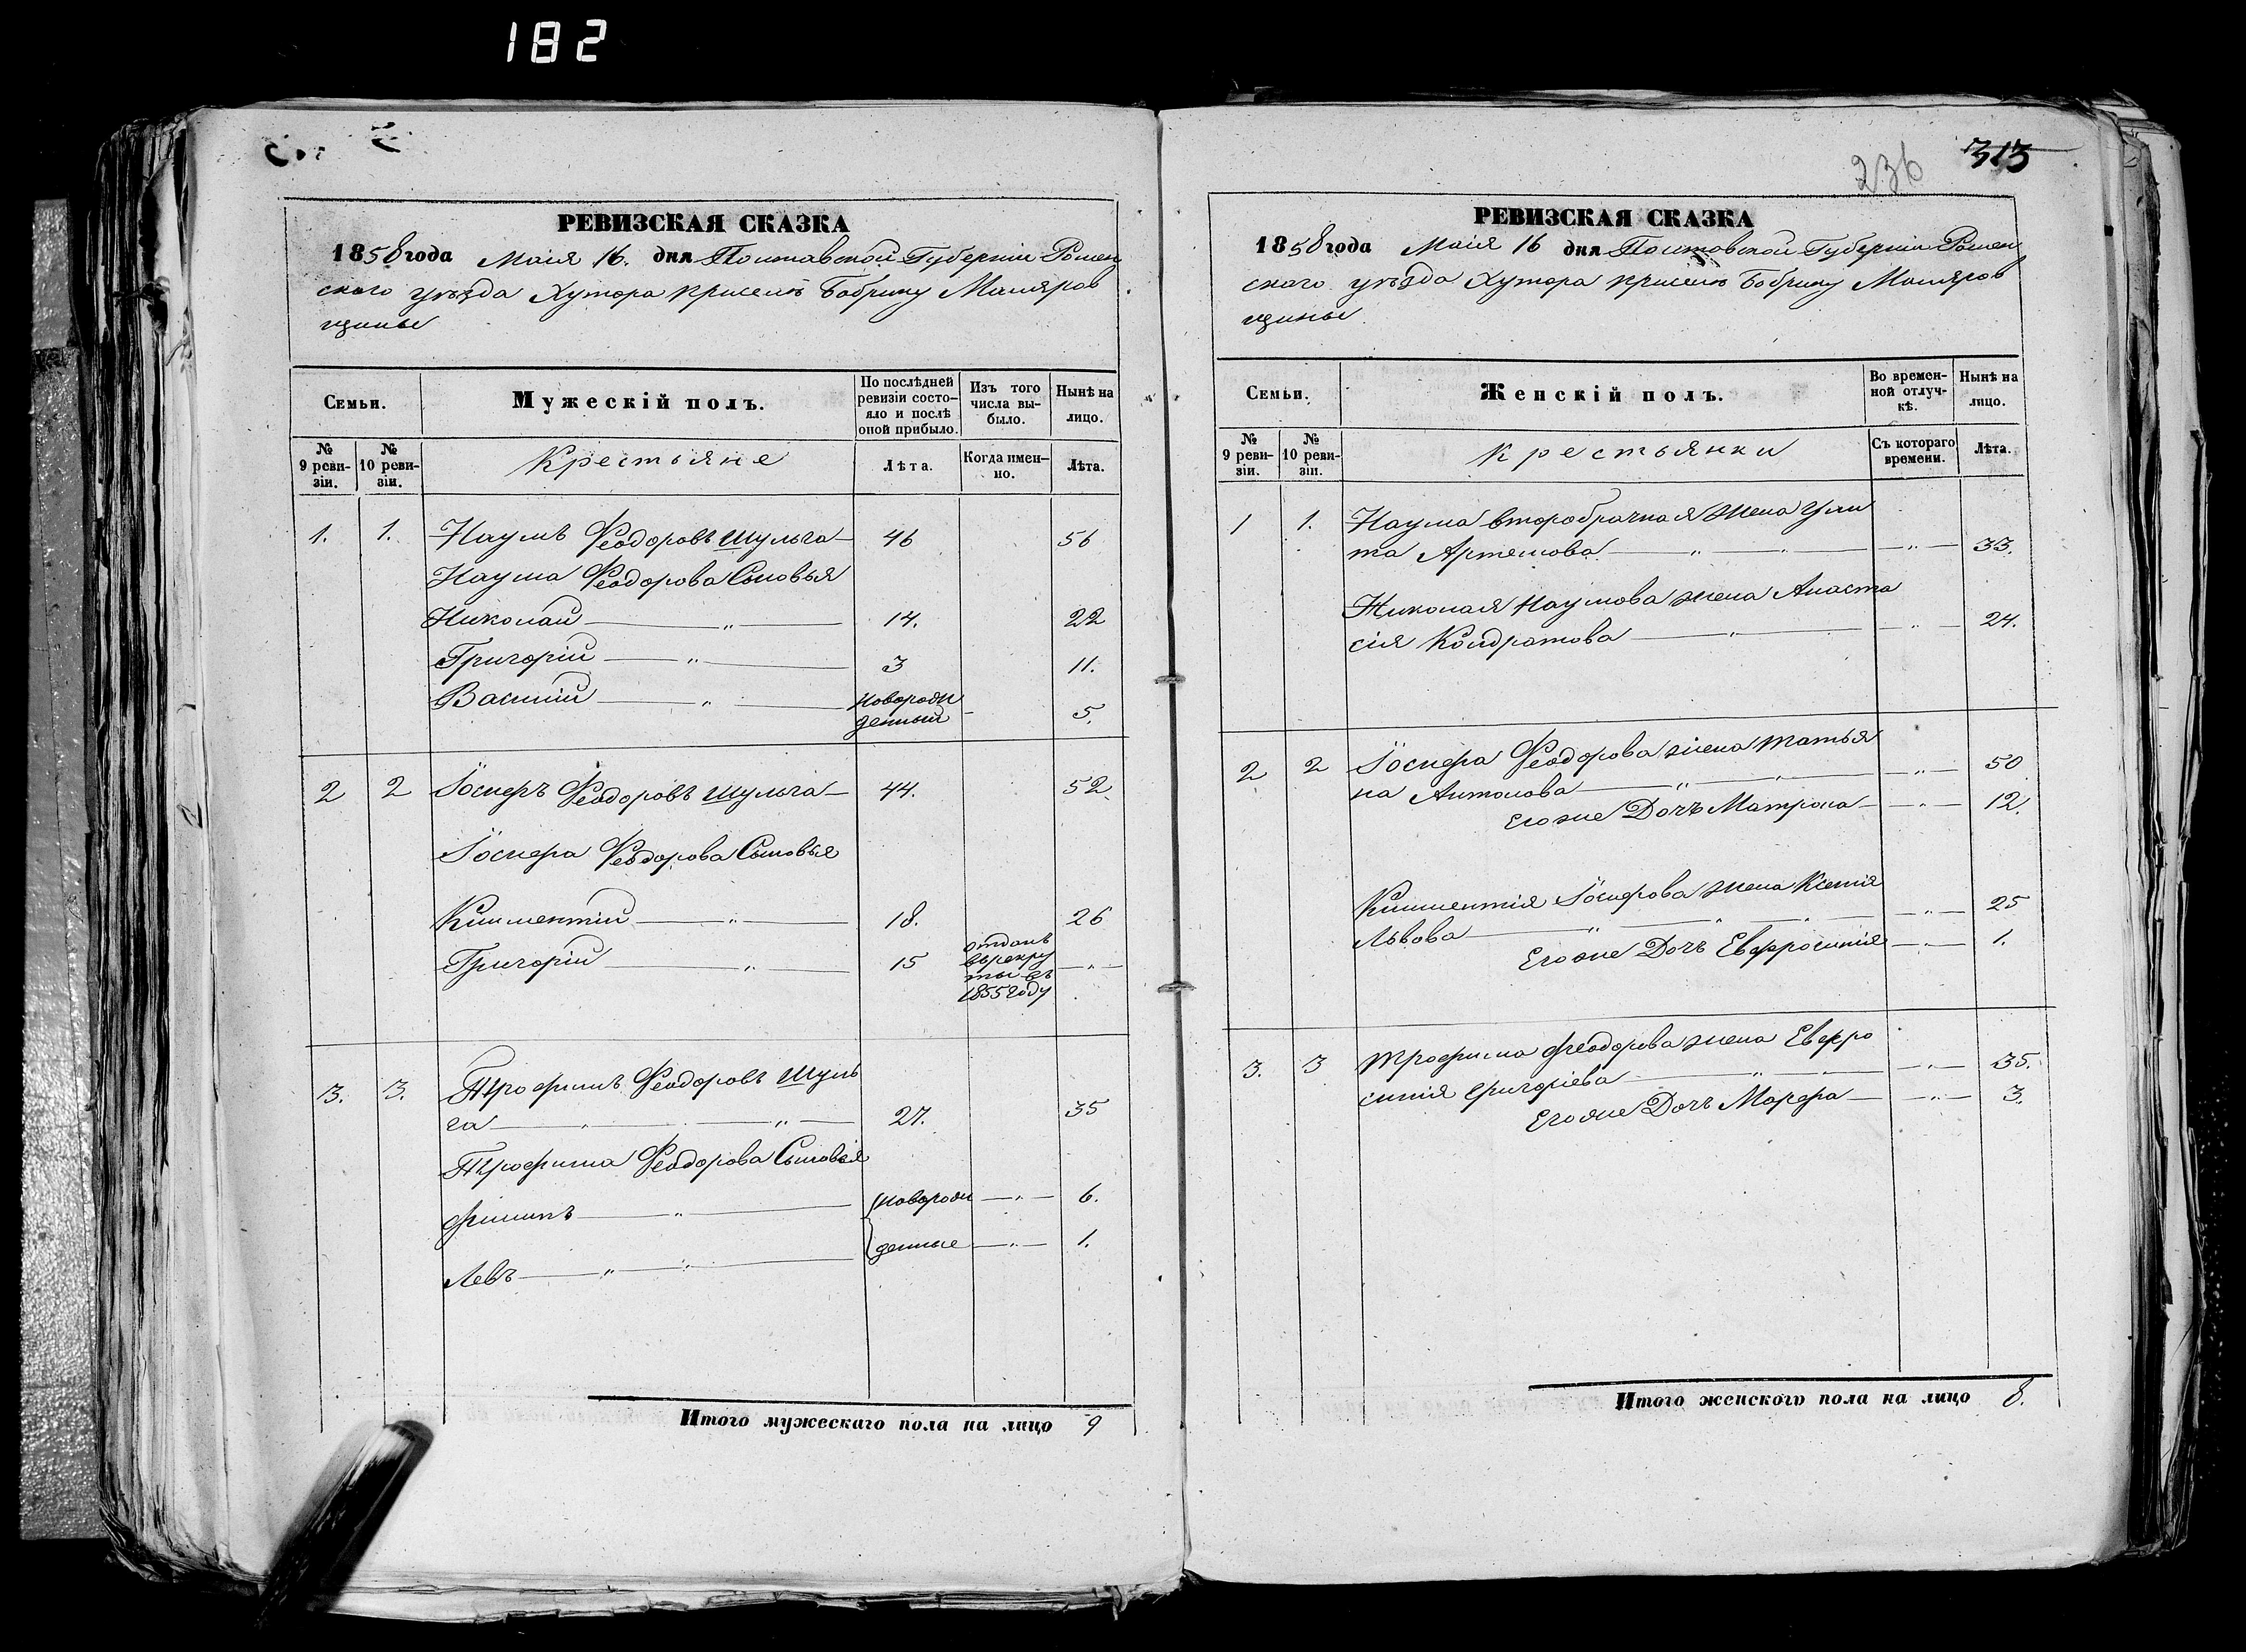 182
РЕВИЗСКАЯ СКАЗКА
1858 года Маія 16. дня Полтавской Губерніи Ромен
скаго уѣзда Хутора при селѣ Бобрику Маляров
щины
Семьи.
Мужескій полъ.
По послѣдней ревизіи состо-яло и послѣ оной прибыло.
Изъ того числа вы-было.
Нынѣ на лицо.
№ 9 реви-зіи.
№ 10 реви-зіи.
Крестьяне
Лѣта.
Когда имен-но.
Лѣта.
1. 1. Наумъ Феодоровъ Шульга 46 56
Наума Феодорова Сыновья
Николай — „ — 14. 22
Григорій — „ — 3 11.
Василій — „ — новорож
денный 5.
2 2 Іосифъ Феодоровъ Шульга 44. 52.
Іосифа Феодорова Сыновья
Климентій — „ — 18. 26
Григорій — „ — 15 отданъ
въ рекру
ты въ — „ —
1855 году
3. 3. Трофимъ Феодоровъ Шуль
га — „ — „ — 27. 35
Трофима Феодорова Сыновья
Филипъ — „ — новорож — „ — 6.
Левъ — „ — „ денные — „ — 1.
Итого мужескаго пола на лицо 9
236 313
РЕВИЗСКАЯ СКАЗКА
1858 года Маія 16 дня Полтавской Губерніи Ромен
скаго уѣзда Хутора при селѣ Бобрику Маляров
щины
Семьи.
Женскій полъ.
Во времен-ной отлуч-кѣ.
Нынѣ на лицо.
№ 9 реви-зіи.
№ 10 реви-зіи.
Крестьянки
Съ котораго времени.
Лѣта.
1 1. Наума второбрачная жена Ули
та Артемова — „ — „ — — „ — 33.
Николая Наумова жена Анаста
сія Кондратова — „ — — „ — 24.
2 2 Іосифа Феодорова жена Татья
на Антонова — „ — „ — — „ — 50
Его же Дочь Матрона — — „ — 12.
Климентія Іосифова жена Ксенія
Львова — „ — „ — „ — — „ — 25
Его же Дочь Евфросинія — „ — 1.
3. 3 Трофима Феодорова жена Евфро
синія Григоріева — „ — „ — — „ — 35.
Его же Дочь Марфа — — „ — 3.
Итого женскаго пола на лицо 8.